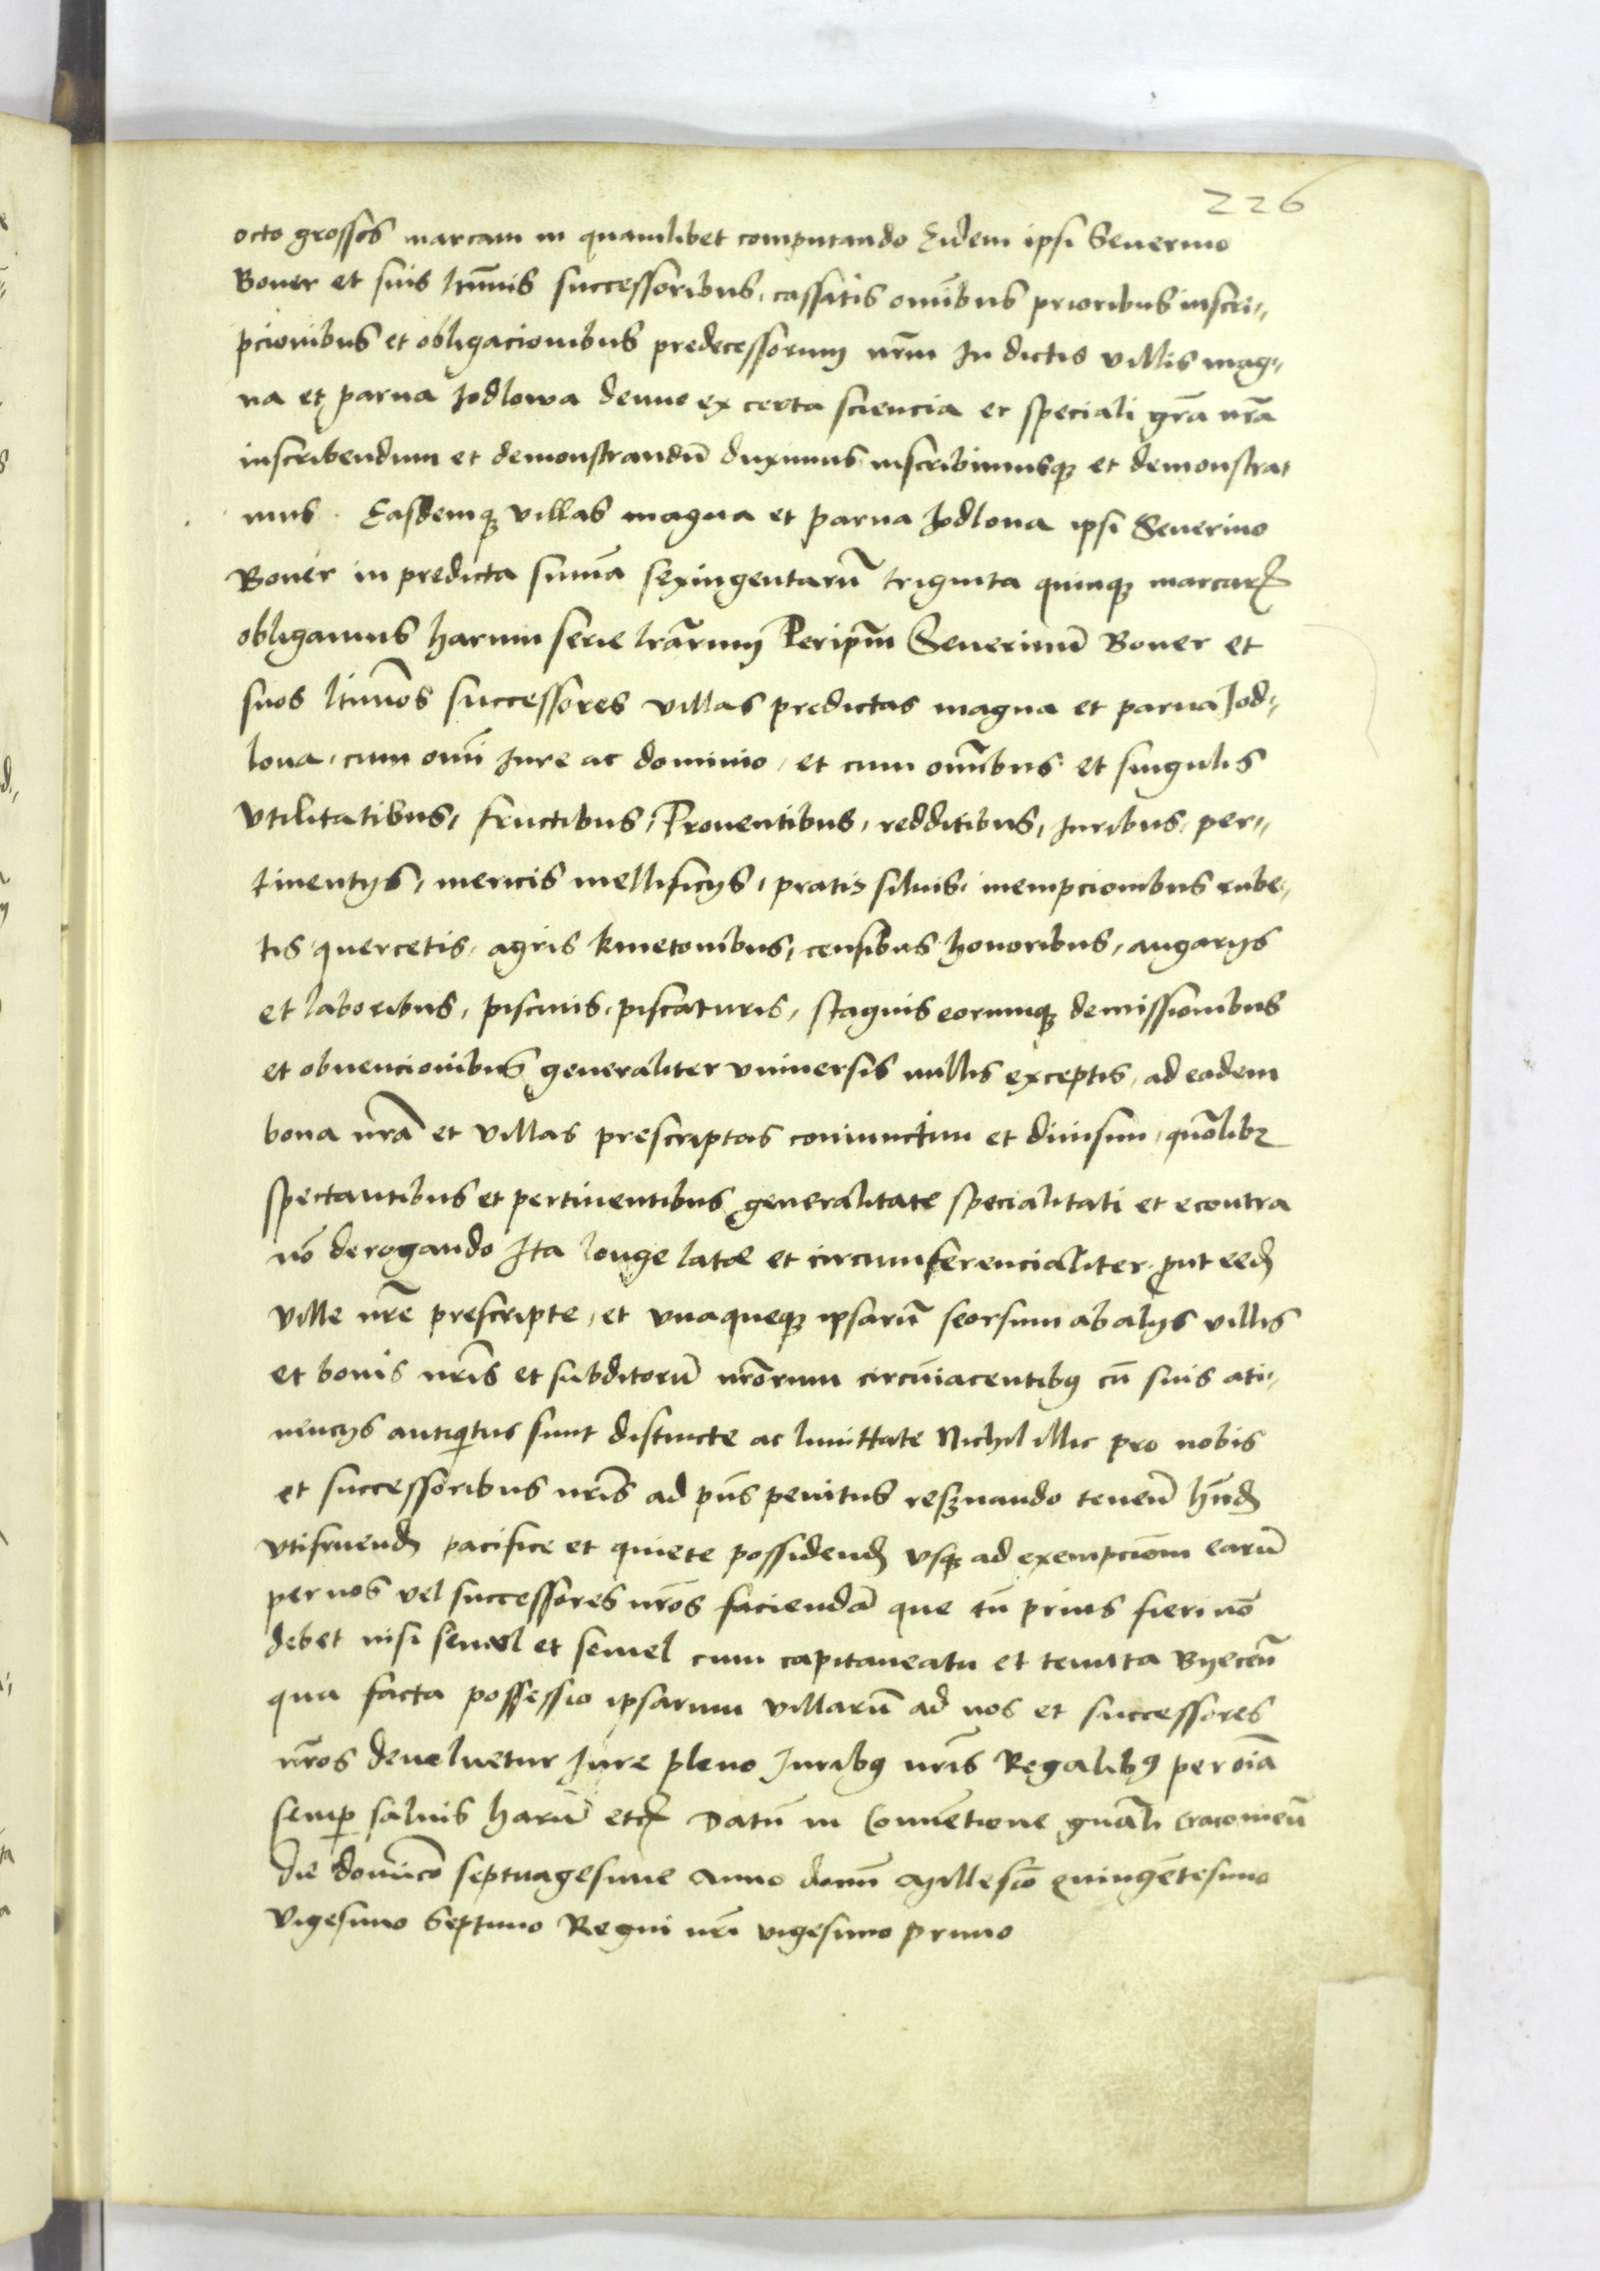 226
octo grossos marcam in quamlibet computando Eidem ipsi Seuerino
Boner et suis ltimis successoribus, cassatis omibus prioribus inscri„
pcionibus et obligacionibus predecessorum nrm In dictis villis mag„
na et parua Jodlowa denuo ex certa sciencia et speciali gra nra
inscribendum et demonstrandu duximus inscribimusq et demonstrat
mus. Easdemq villas magna et parua Jodlowa ipsi Seuerino
Boner in predicta suma sexingentaru triginta quinq marcar
obligamus harum serie lrarum Per ipm Seuerinu Boner et
suos ltimos successores villas predictas magna et parua Jod„
lowa, cum omi Jure ac dominio, et cum omibus et singulis
vtilitatibus, fructibus, Prouentibus, redditibus, Juribus, per„
tinentijs, mericis mellificijs, pratis siluis, nempcionibus rube„
tis quercetis, agris kmetonibus, censibus honoribus, angarijs
et laboribus, piscinis, piscaturis, stagnis eorumq demissionibus
et obuencionibus generaliter vniuersis nullis exceptis, ad eadem
bona nra et villas prescriptas coniunctim et diuisim, quolib3
spectantibus et pertinentibus generalitate specialitati et econtra
no derogando Ita longe late et circumferencialiter, put eed
ville nre prescripte, et vnaqueq ipsaru seorsum ab alijs villis
et bonis nris et subditoru nrorum circuiacentibus cu suis ati„
nencijs antiqitus sunt distincte ac limittate Nichil illic pro nobis
et successoribus nris ad pns penitus reseruando teneu hnd
vtifruend pacifice et quiete possidend vsq ad exempciom earu
per nos vel successores nros facienda que tn prius fieri no
debet nisi semel et semel cum capitaneatu et tenuta Byeceu
qua facta possessio ipsarum villaru ad nos et successores
nros deuoluetur Jure pleno Juribus nris Regalibus per oia
semp saluis haru etc Datu in Conuetione gnali Cracouieu
die dominico septuagesime Anno domi Millesio quingetesimo
vigesimo Septimo Regni nri vigesimo primo